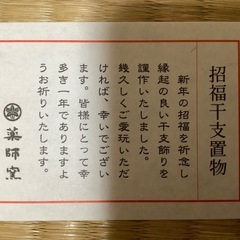 招福干支置物
新年の招福を祈念し
縁起の良い干支飾りを
謹作いたしました。
幾久しくご愛玩いただ
ければ、幸いでござい
ます。皆様にとって幸
多き一年でありますよ
うお祈りいたします。
薬師窯